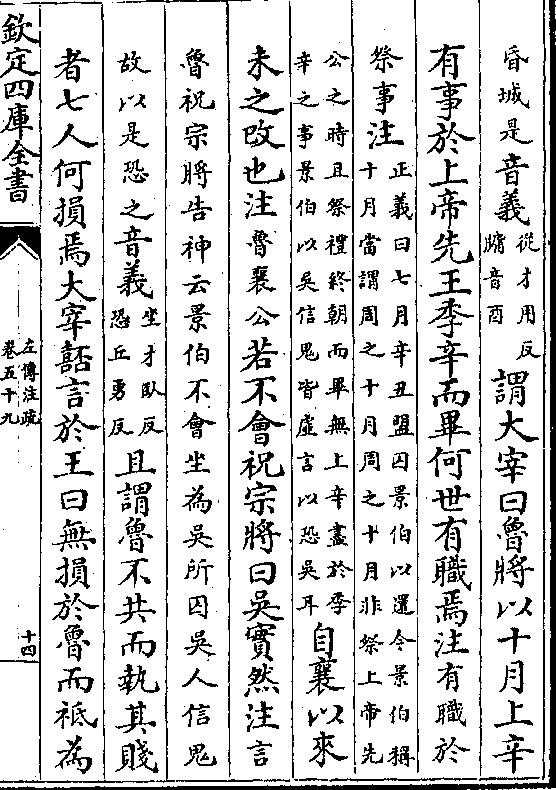 昏城是音義從才用反牗音酉謂大宰曰魯將以十月上辛
有事於上帝先王季辛而畢何世有職焉注有職於
祭事注正義曰七月辛丑盟囚景伯以還今景伯稱十月當謂周之十月周之十月非祭上帝先
公之時且祭禮終朝而畢無上辛盡於季辛之事景伯以吳信鬼皆虛言以恐吳耳自襄以來
未之改也注魯襄公若不會祝宗將曰吳實然注言
魯祝宗將告神云景伯不會坐為吳所囚吳人信鬼
故以是恐之音義坐才臥反恐丘勇反且謂魯不共而執其賤
者七人何損焉大宰嚭言於王曰無損於魯而祗為
欽定四庫全書
左傳注疏
卷五十九
十四